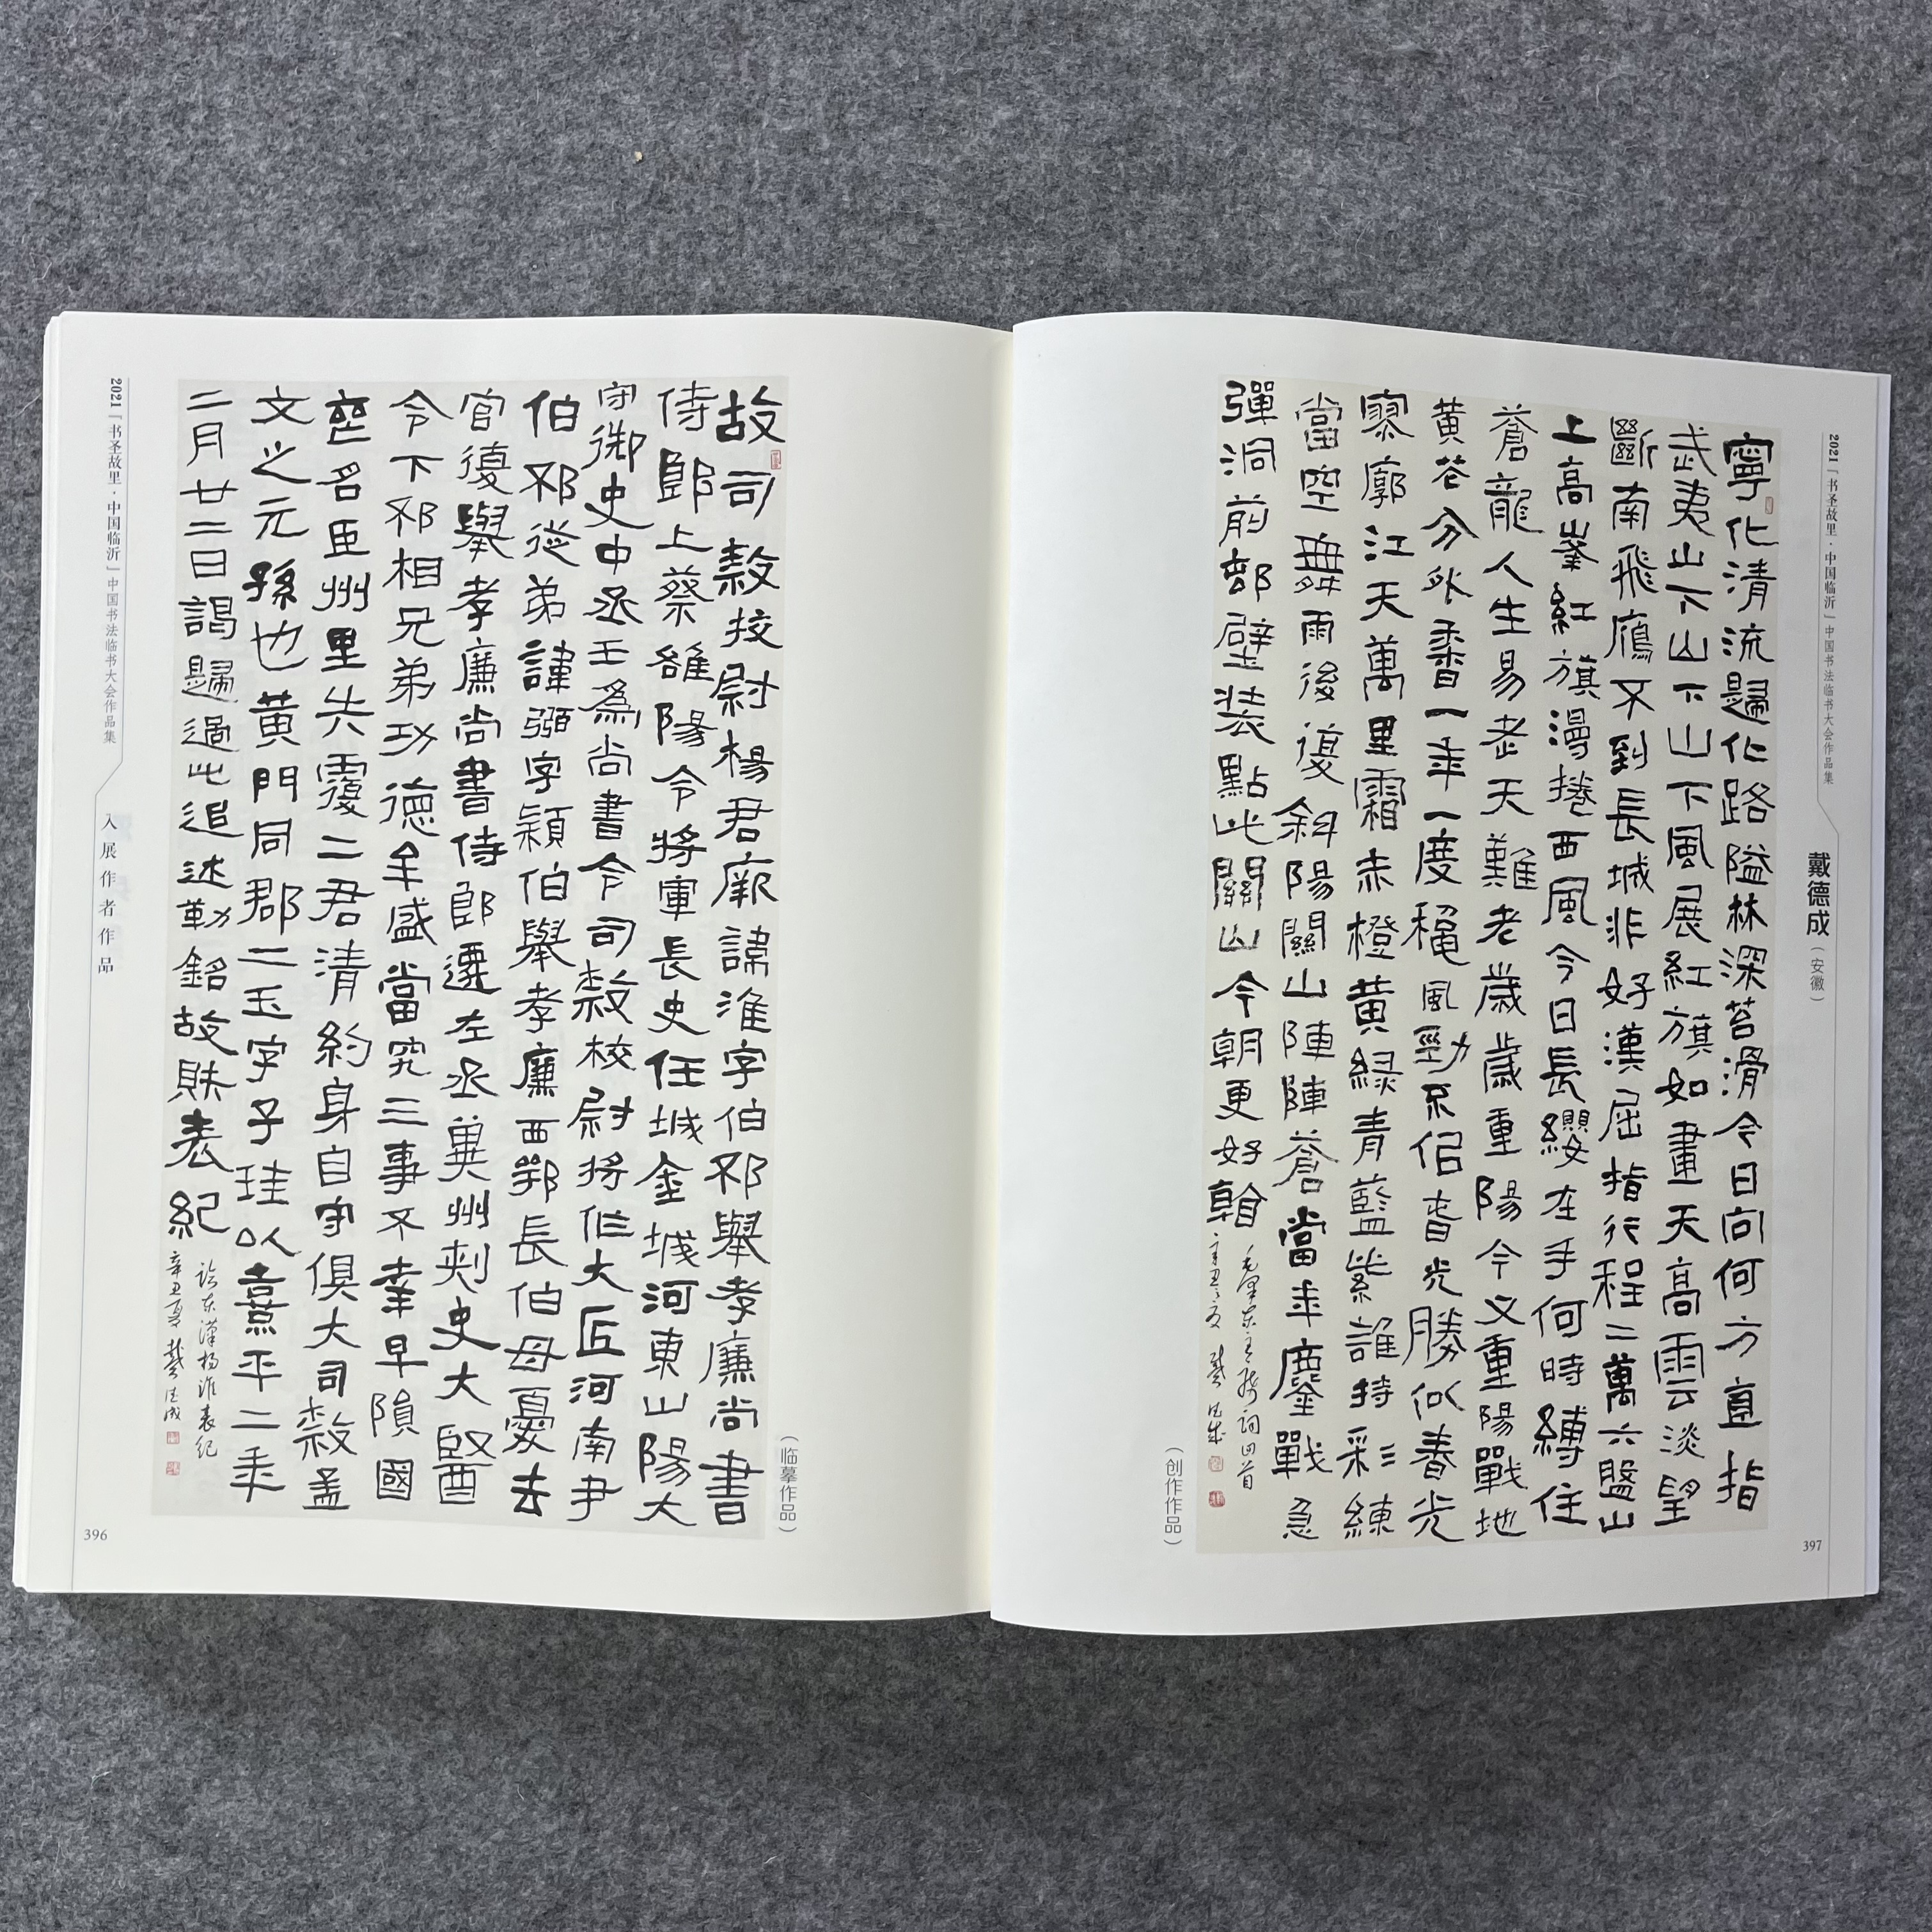 2021「书圣故里·中国临沂」中国书法临书大会作品集
入展作者作品
故司隸校尉楊君厥諱淮字伯邳舉孝廉尚書
侍郎上蔡雒陽令將軍長史任城金城河東山陽大
守御史中丞三爲尚書令司隸校尉將作大匠河南尹
伯邳從弟諱弼字穎伯舉孝廉西鄂長伯母憂去
官復舉孝廉尚書侍郎遷左丞冀州刺史大醫
令下邳相兄弟功德牟盛當究三事不幸早隕國
喪名臣州里失覆二君清約身自守俱大司隸孟
文之元孫也黃門同郡卞玉字子珪以熹平二年
二月廿二日謁歸過此追述勒銘故財表紀
臨東漢楊淮表紀
辛丑夏戴德成
（临摹作品）
396
2021「书圣故里·中国临沂」中国书法临书大会作品集
戴德成（安徽）
寧化清流歸化路隘林深苔滑今日向何方直指
武夷山下山下山下風展紅旗如畫天高雲淡望
斷南飛鴈不到長城非好漢屈指行程二萬六盤山
上高峯紅旗漫捲西風今日長纓在手何時縛住
蒼龍人生易老天難老歲歲重陽今又重陽戰地
黃花分外香一年一度穐風勁不侣春光勝似春光
寥廓江天萬里霜赤橙黃綠青藍紫誰持彩練
當空舞雨後復斜陽關山陣陣蒼當年鏖戰急
彈洞前邨壁裝點此關山今朝更好看
毛澤東主席詞四首
辛丑夏戴德成
（创作作品）
397